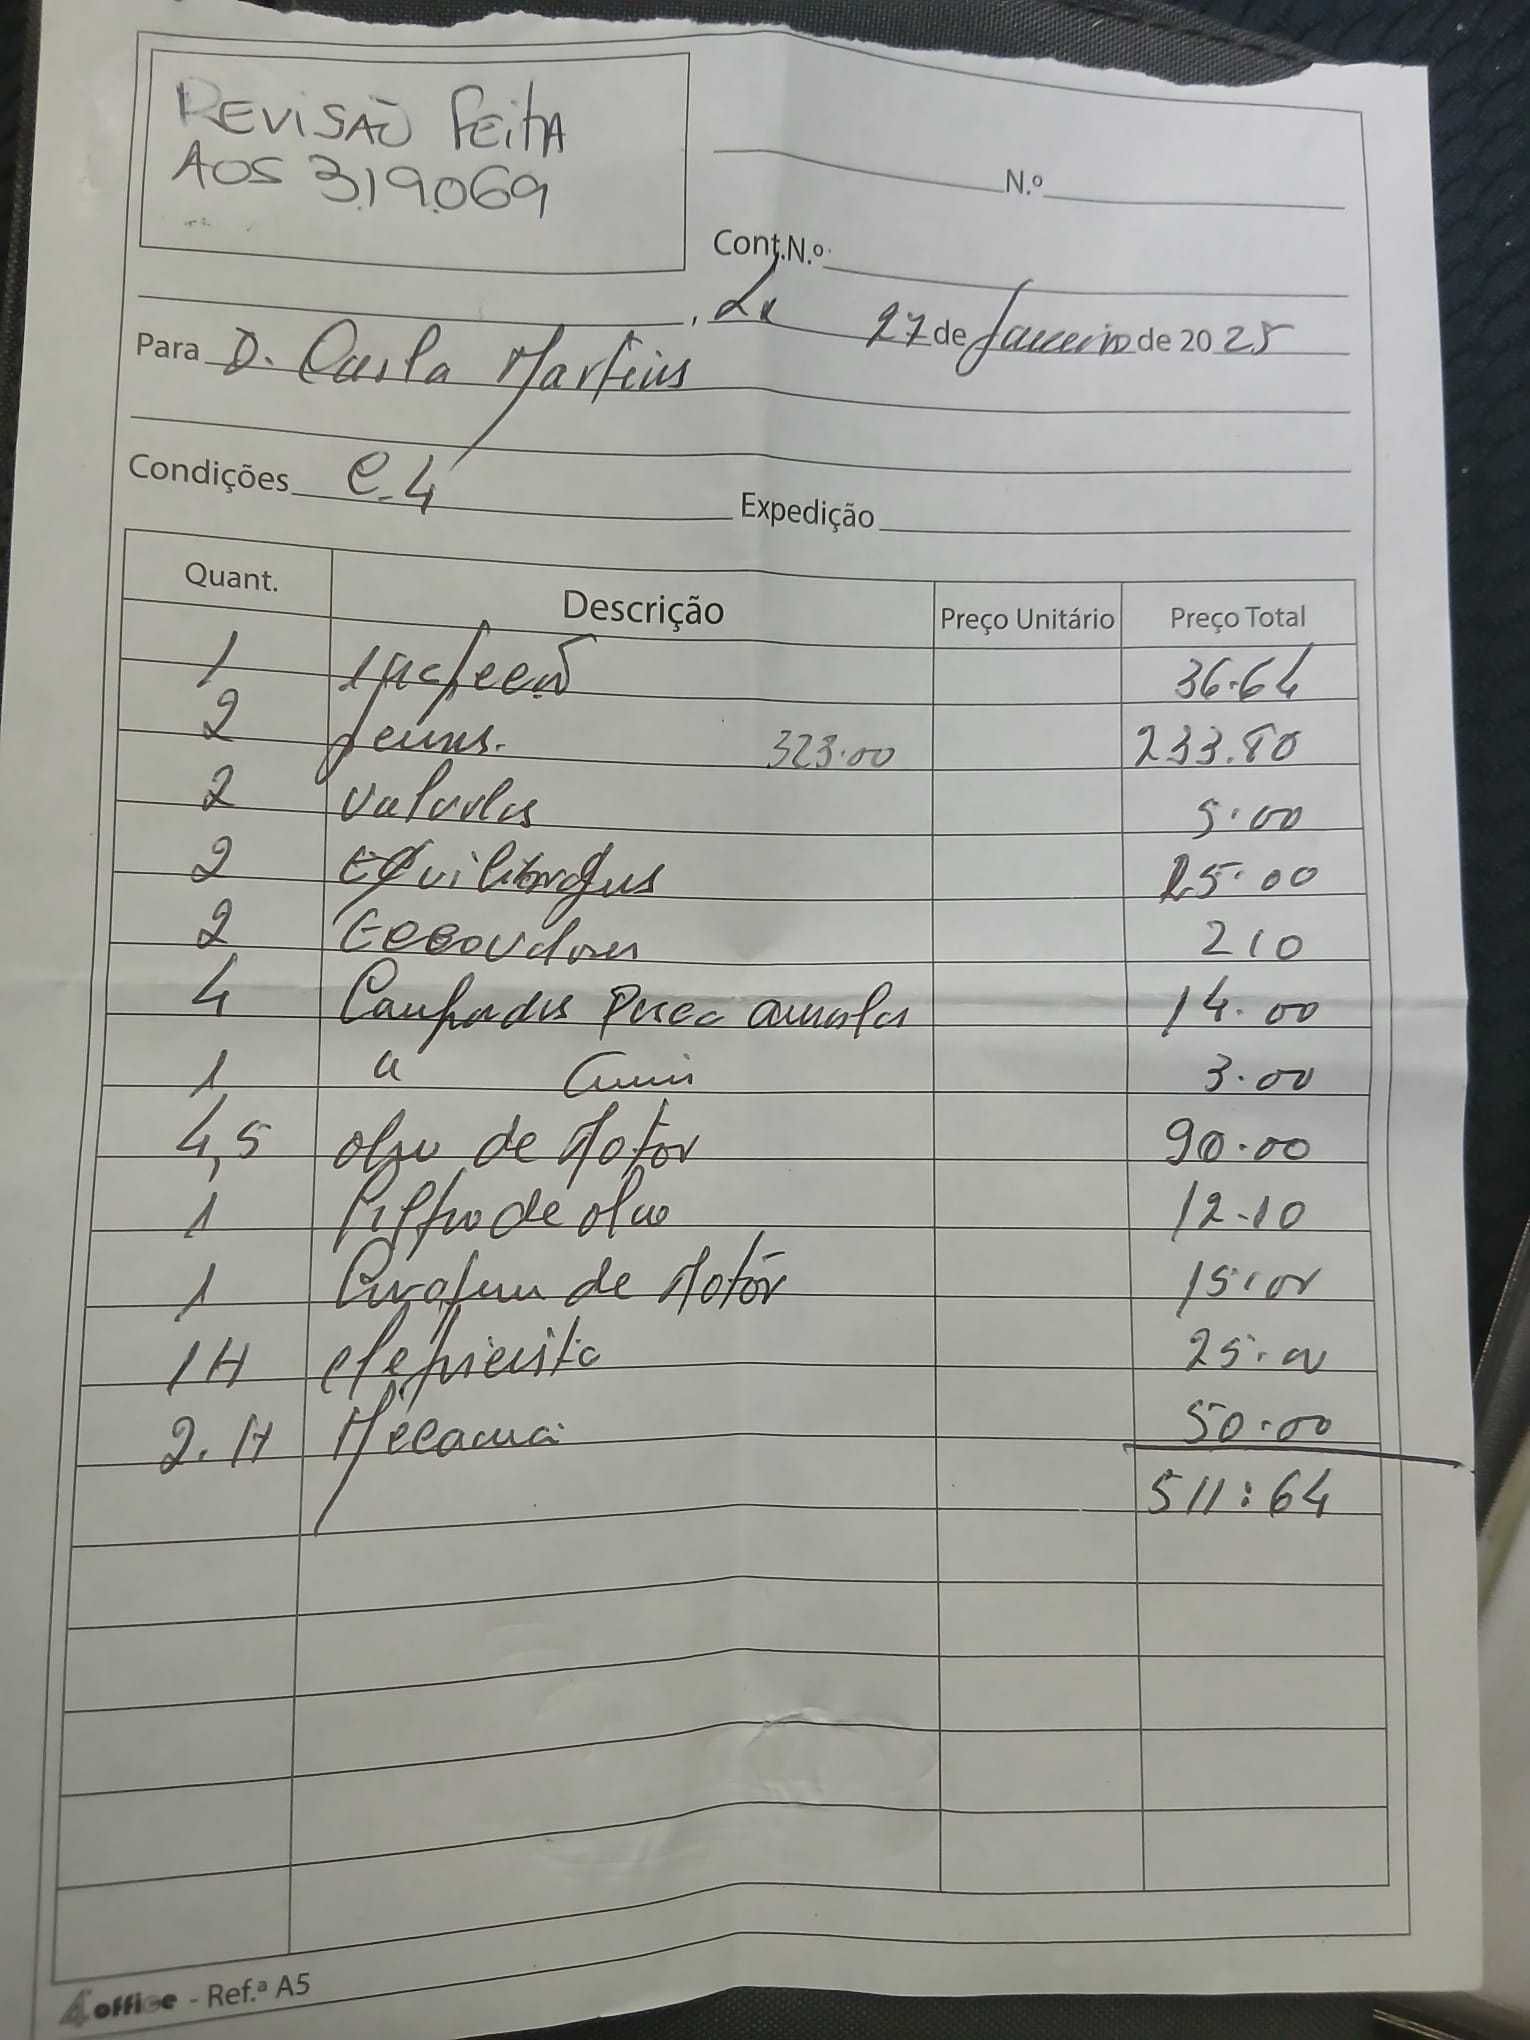 REVISÃO FEITA
AOS 319.069
N.º
Cont.N.º
, Lx 27 de Janeiro de 2025
Para D. Carla Martins
Condições C.4 Expedição
Quant. Descrição Preço Unitário Preço Total
1 36.64
2 pneus. 323.00 233.80
2 Valvulas 5.00
2 Equilibragens 25.00
2 Escovdores 210
4 Lampadas para 14.00
1 " 3.00
4,5 oleo de Motor 90.00
1 Filtro de oleo 12.10
1 de Motor 15.00
1H eletricista 25.00
2.H Mecanica 50.00
511:64
4office - Ref.ª A5